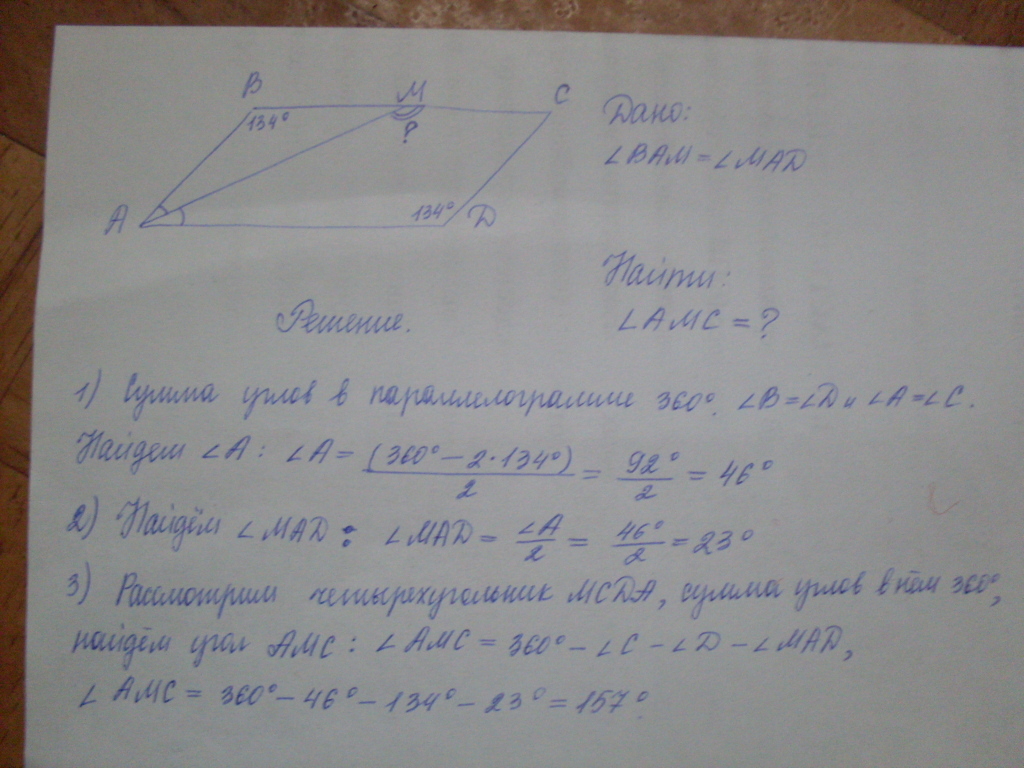 B M C
134° ?
A 134° D
Дано:
∠BAM = ∠MAD
Найти:
∠AMC = ?
Решение.
1) Сумма углов в параллелограмме 360°. ∠B = ∠D и ∠A = ∠C.
Найдем ∠A: ∠A = (360° - 2·134°)/2 = 92°/2 = 46°
2) Найдём ∠MAD: ∠MAD = ∠A/2 = 46°/2 = 23°
3) Рассмотрим четырехугольник MCDA, сумма углов в нём 360°,
найдём угол AMC: ∠AMC = 360° - ∠C - ∠D - ∠MAD,
∠AMC = 360° - 46° - 134° - 23° = 157°.